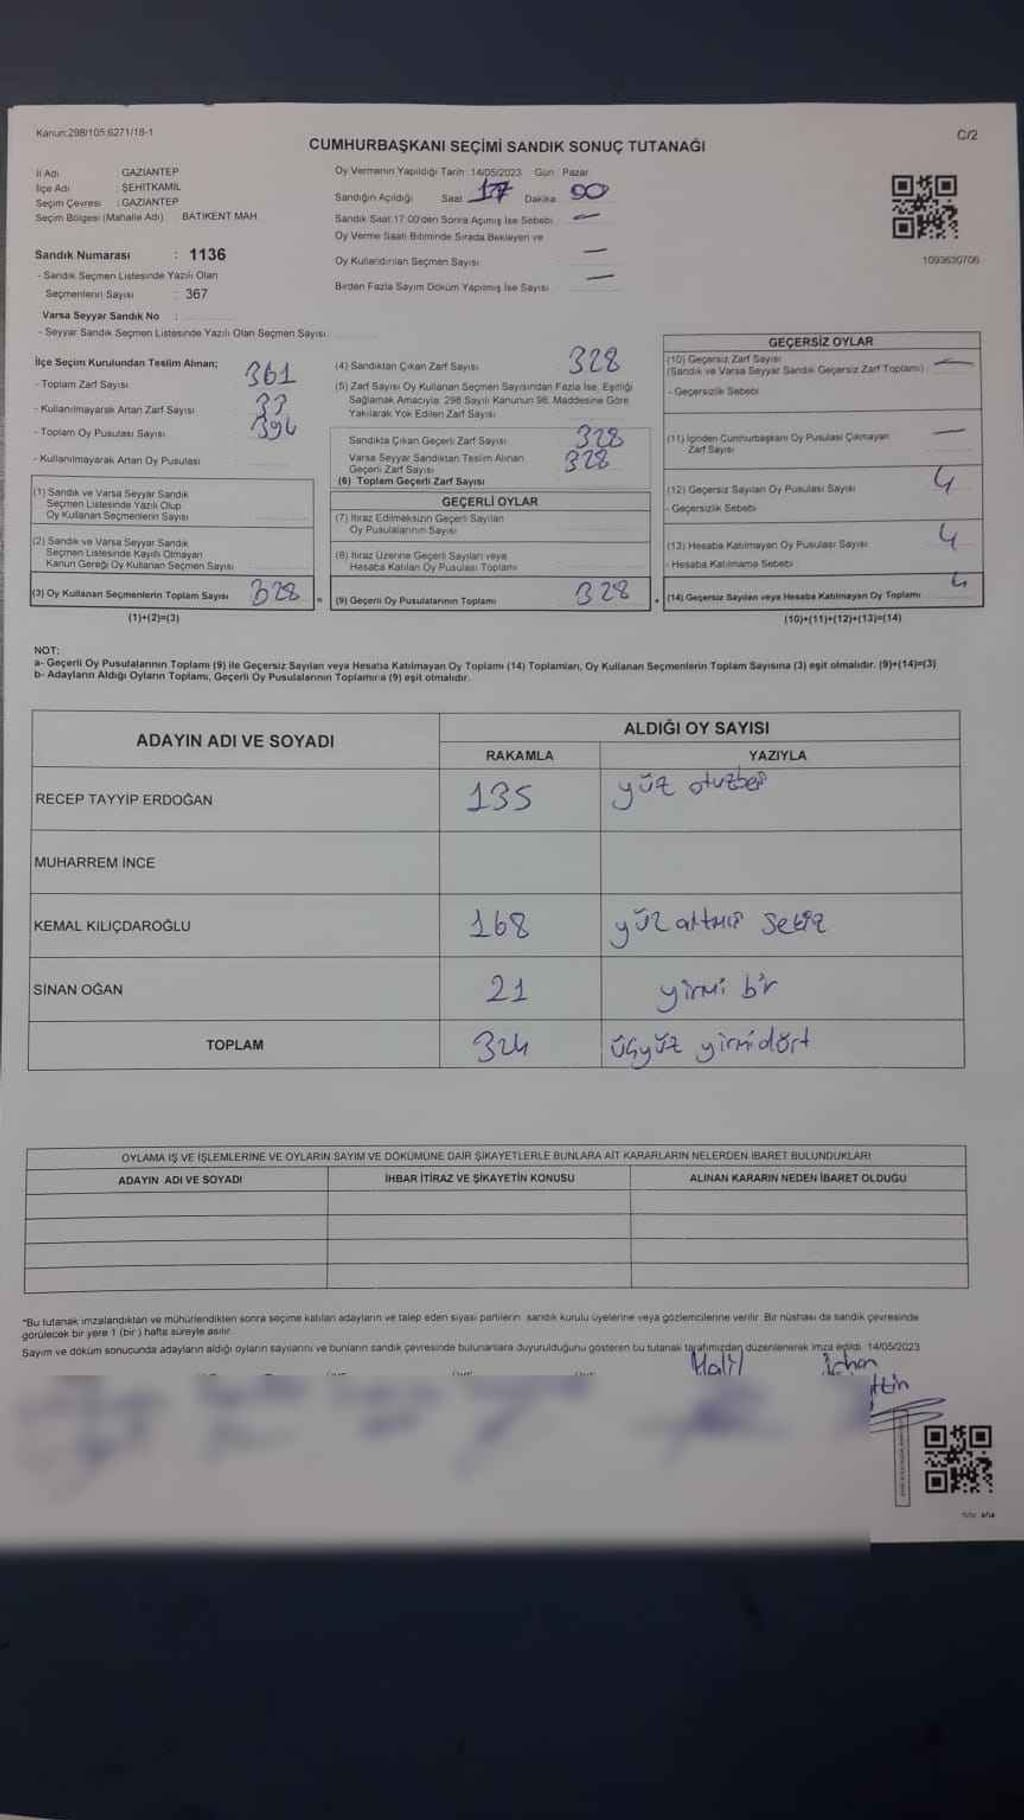 Kanun:298/105;6271/18-1
C/2
CUMHURBAŞKANI SEÇİMİ SANDIK SONUÇ TUTANAĞI
İl Adı : GAZİANTEP
İlçe Adı : ŞEHİTKAMİL
Seçim Çevresi : GAZİANTEP
Seçim Bölgesi (Mahalle Adı) BATIKENT MAH.
Sandık Numarası : 1136
- Sandık Seçmen Listesinde Yazılı Olan
Seçmenlerin Sayısı : 367
Varsa Seyyar Sandık No :
- Seyyar Sandık Seçmen Listesinde Yazılı Olan Seçmen Sayısı:
Oy Vermenin Yapıldığı Tarih :14/05/2023 Gün : Pazar
Sandığın Açıldığı Saat 17 Dakika 00
Sandık Saat:17:00'den Sonra Açımış İse Sebebi —
Oy Verme Saati Bitiminde Sırada Bekleyen ve
Oy Kullandırılan Seçmen Sayısı —
Birden Fazla Sayım Döküm Yapılmış İse Sayısı —
1093630706
İlçe Seçim Kurulundan Teslim Alınan;
- Toplam Zarf Sayısı 361
- Kullanılmayarak Artan Zarf Sayısı 33
- Toplam Oy Pusulası Sayısı
- Kullanılmayarak Artan Oy Pusulası
(1) Sandık ve Varsa Seyyar Sandık
Seçmen Listesinde Yazılı Olup
Oy Kullanan Seçmenlerin Sayısı
(2) Sandık ve Varsa Seyyar Sandık
Seçmen Listesinde Kayıtlı Olmayan
Kanun Gereği Oy Kullanan Seçmen Sayısı
(3) Oy Kullanan Seçmenlerin Toplam Sayısı 328
(1)+(2)=(3)
(4) Sandıktan Çıkan Zarf Sayısı 328
(5) Zarf Sayısı Oy Kullanan Seçmen Sayısından Fazla İse, Eşitliği
Sağlamak Amacıyla; 298 Sayılı Kanunun 98. Maddesine Göre
Yakılarak Yok Edilen Zarf Sayısı
Sandıkta Çıkan Geçerli Zarf Sayısı 328
Varsa Seyyar Sandıktan Teslim Alınan
Geçerli Zarf Sayısı 328
(6) Toplam Geçerli Zarf Sayısı
GEÇERLİ OYLAR
(7) İtiraz Edilmeksizin Geçerli Sayılan
Oy Pusulalarının Sayısı
(8) İtiraz Üzerine Geçerli Sayılan veya
Hesaba Katılan Oy Pusulası Toplamı
= (9) Geçerli Oy Pusulalarının Toplamı 328
GEÇERSİZ OYLAR
(10) Geçersiz Zarf Sayısı
(Sandık ve Varsa Seyyar Sandık Geçersiz Zarf Toplamı) —
- Geçersizlik Sebebi
(11) İçinden Cumhurbaşkanı Oy Pusulası Çıkmayan
Zarf Sayısı —
(12) Geçersiz Sayılan Oy Pusulası Sayısı 4
- Geçersizlik Sebebi
(13) Hesaba Katılmayan Oy Pusulası Sayısı 4
- Hesaba Katılmama Sebebi
+ (14) Geçersiz Sayılan veya Hesaba Katılmayan Oy Toplamı 4
(10)+(11)+(12)+(13)=(14)
NOT:
a- Geçerli Oy Pusulalarının Toplamı (9) ile Geçersiz Sayılan veya Hesaba Katılmayan Oy Toplamı (14) Toplamları, Oy Kullanan Seçmenlerin Toplam Sayısına (3) eşit olmalıdır. (9)+(14)=(3)
b- Adayların Aldığı Oyların Toplamı, Geçerli Oy Pusulalarının Toplamına (9) eşit olmalıdır.
ADAYIN ADI VE SOYADI
ALDIĞI OY SAYISI
RAKAMLA YAZIYLA
RECEP TAYYİP ERDOĞAN 135 yüz otuzbeş
MUHARREM İNCE
KEMAL KILIÇDAROĞLU 168 yüz altmış sekiz
SİNAN OĞAN 21 yirmi bir
TOPLAM 324 üçyüz yirmidört
OYLAMA İŞ VE İŞLEMLERİNE VE OYLARIN SAYIM VE DÖKÜMÜNE DAİR ŞİKAYETLERLE BUNLARA AİT KARARLARIN NELERDEN İBARET BULUNDUKLARI
ADAYIN ADI VE SOYADI İHBAR İTİRAZ VE ŞİKAYETİN KONUSU ALINAN KARARIN NEDEN İBARET OLDUĞU
*Bu tutanak imzalandıktan ve mühürlendikten sonra seçime katılan adayların ve talep eden siyasi partilerin sandık kurulu üyelerine veya gözlemcilerine verilir. Bir nüshası da sandık çevresinde
görülecek bir yere 1 (bir ) hafta süreyle asılır.
Sayım ve döküm sonucunda adayların aldığı oyların sayılarını ve bunların sandık çevresinde bulunanlara duyurulduğunu gösteren bu tutanak tarafımızdan düzenlenerek imza edildi. 14/05/2023
Halil
ttin